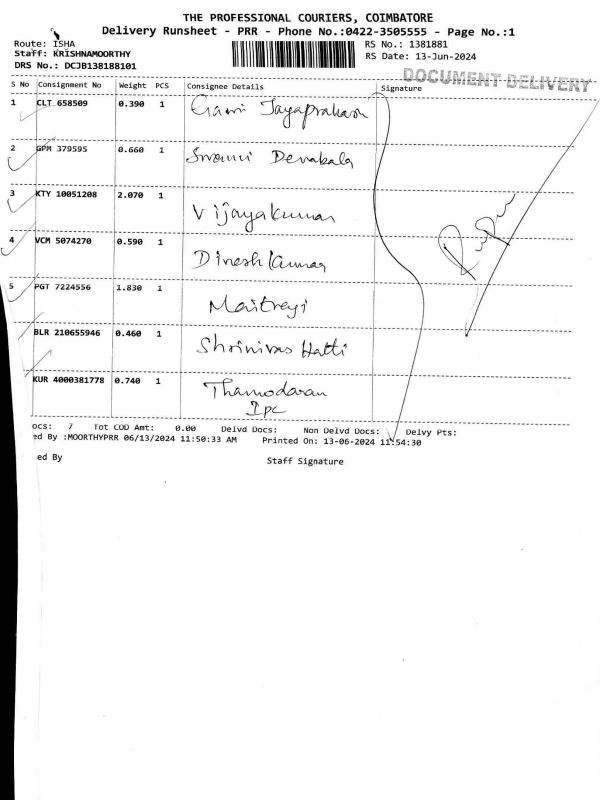 THE PROFESSIONAL COURIERS, COIMBATORE
Delivery Runsheet - PRR - Phone No.:0422-3505555 - Page No.:1
Route: ISHA
Staff: KRISHNAMOORTHY
DRS No.: DCJB138188101
RS No.: 1381881
RS Date: 13-Jun-2024
DOCUMENT DELIVERY
S No Consignment No Weight PCS Consignee Details Signature
1 CLT 658509 0.390 1 Jayaprakash
2 GPM 379595 0.660 1 Swami Devakala
3 KTY 10051208 2.070 1 Vijayakumar
4 VCM 5074270 0.590 1 Dinesh Kumar
5 PGT 7224556 1.830 1 Maitreyi
BLR 210655946 0.460 1 Shrinivas Hatti
KUR 4000381778 0.740 1 Thamodaran
Ipc
ocs: 7 Tot COD Amt: 0.00 Delvd Docs: Non Delvd Docs: Delvy Pts:
ed By :MOORTHYPRR 06/13/2024 11:50:33 AM Printed On: 13-06-2024 11:54:30
ed By Staff Signature